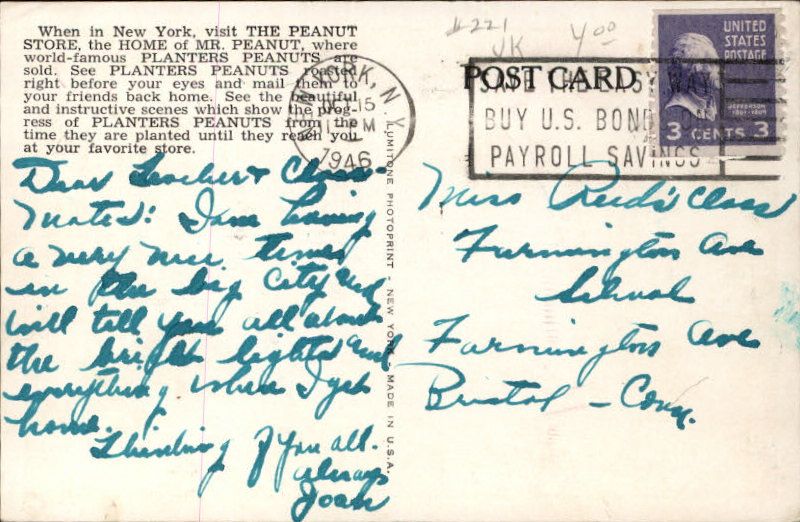 When in New York, visit THE PEANUT
STORE, the HOME of MR. PEANUT, where
world-famous PLANTERS PEANUTS are
sold. See PLANTERS PEANUTS roasted
right before your eyes and mail them to
your friends back home. See the beautiful
and instructive scenes which show the prog-
ress of PLANTERS PEANUTS from the
time they are planted until they reach you
at your favorite store.
#221
UK
4.00
POST CARD
YORK, N.Y.
15
PM
1946
SAVE THE EASY WAY
BUY U.S. BONDS
PAYROLL SAVINGS
UNITED
STATES
POSTAGE
JEFFERSON
3 CENTS 3
Dear Teacher & Class
mates: I am having
a very nice time
in the big City and
will tell you all about
the bright lights and
everything when I get
home.
Thinking of you all.
always
Joan
LUMITONE PHOTOPRINT - NEW YORK
MADE IN U.S.A.
Miss Reid's Class
Farmington Ave
School
Farmington Ave
Bristol - Conn.